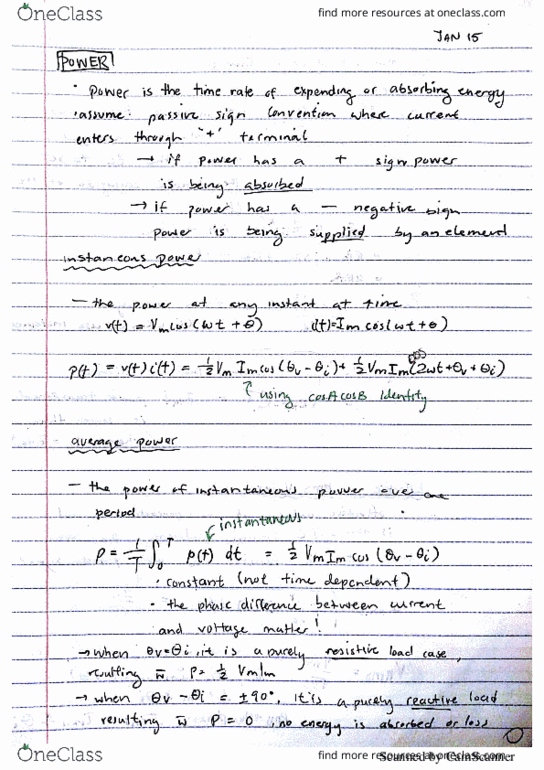 OneClass
find more resources at oneclass.com
JAN 15
POWER
· Power is the time rate of expending or absorbing energy
· assume passive sign convention where current
enters through "+" terminal
→ if power has a + sign power
is being absorbed
→ if power has a — negative sign
power is being supplied by an element
instaneous power
— the power at any instant at time
v(t) = Vm cos(ωt + θ) i(t) = Im cos(ωt + θ)
p(t) = v(t) i(t) = ½ Vm Im cos(θv - θi) + ½ Vm Im cos(2ωt + θv + θi)
↑ using cosAcosB Identity
average power
— the power of instantaneous power over one
period
instantaneous
P = 1/T ∫₀ᵀ p(t) dt = ½ Vm Im cos(θv - θi)
· constant (not time dependent)
· the phase difference between current
and voltage matter!
→ when θv = θi, it is a purely resistive load case,
resulting w P = ½ VmIm
→ when θv - θi = ±90°, It is a purely reactive load
resulting w P = 0, no energy is absorbed or loss
OneClass
find more resources at oneclass.com
Scanned by CamScanner